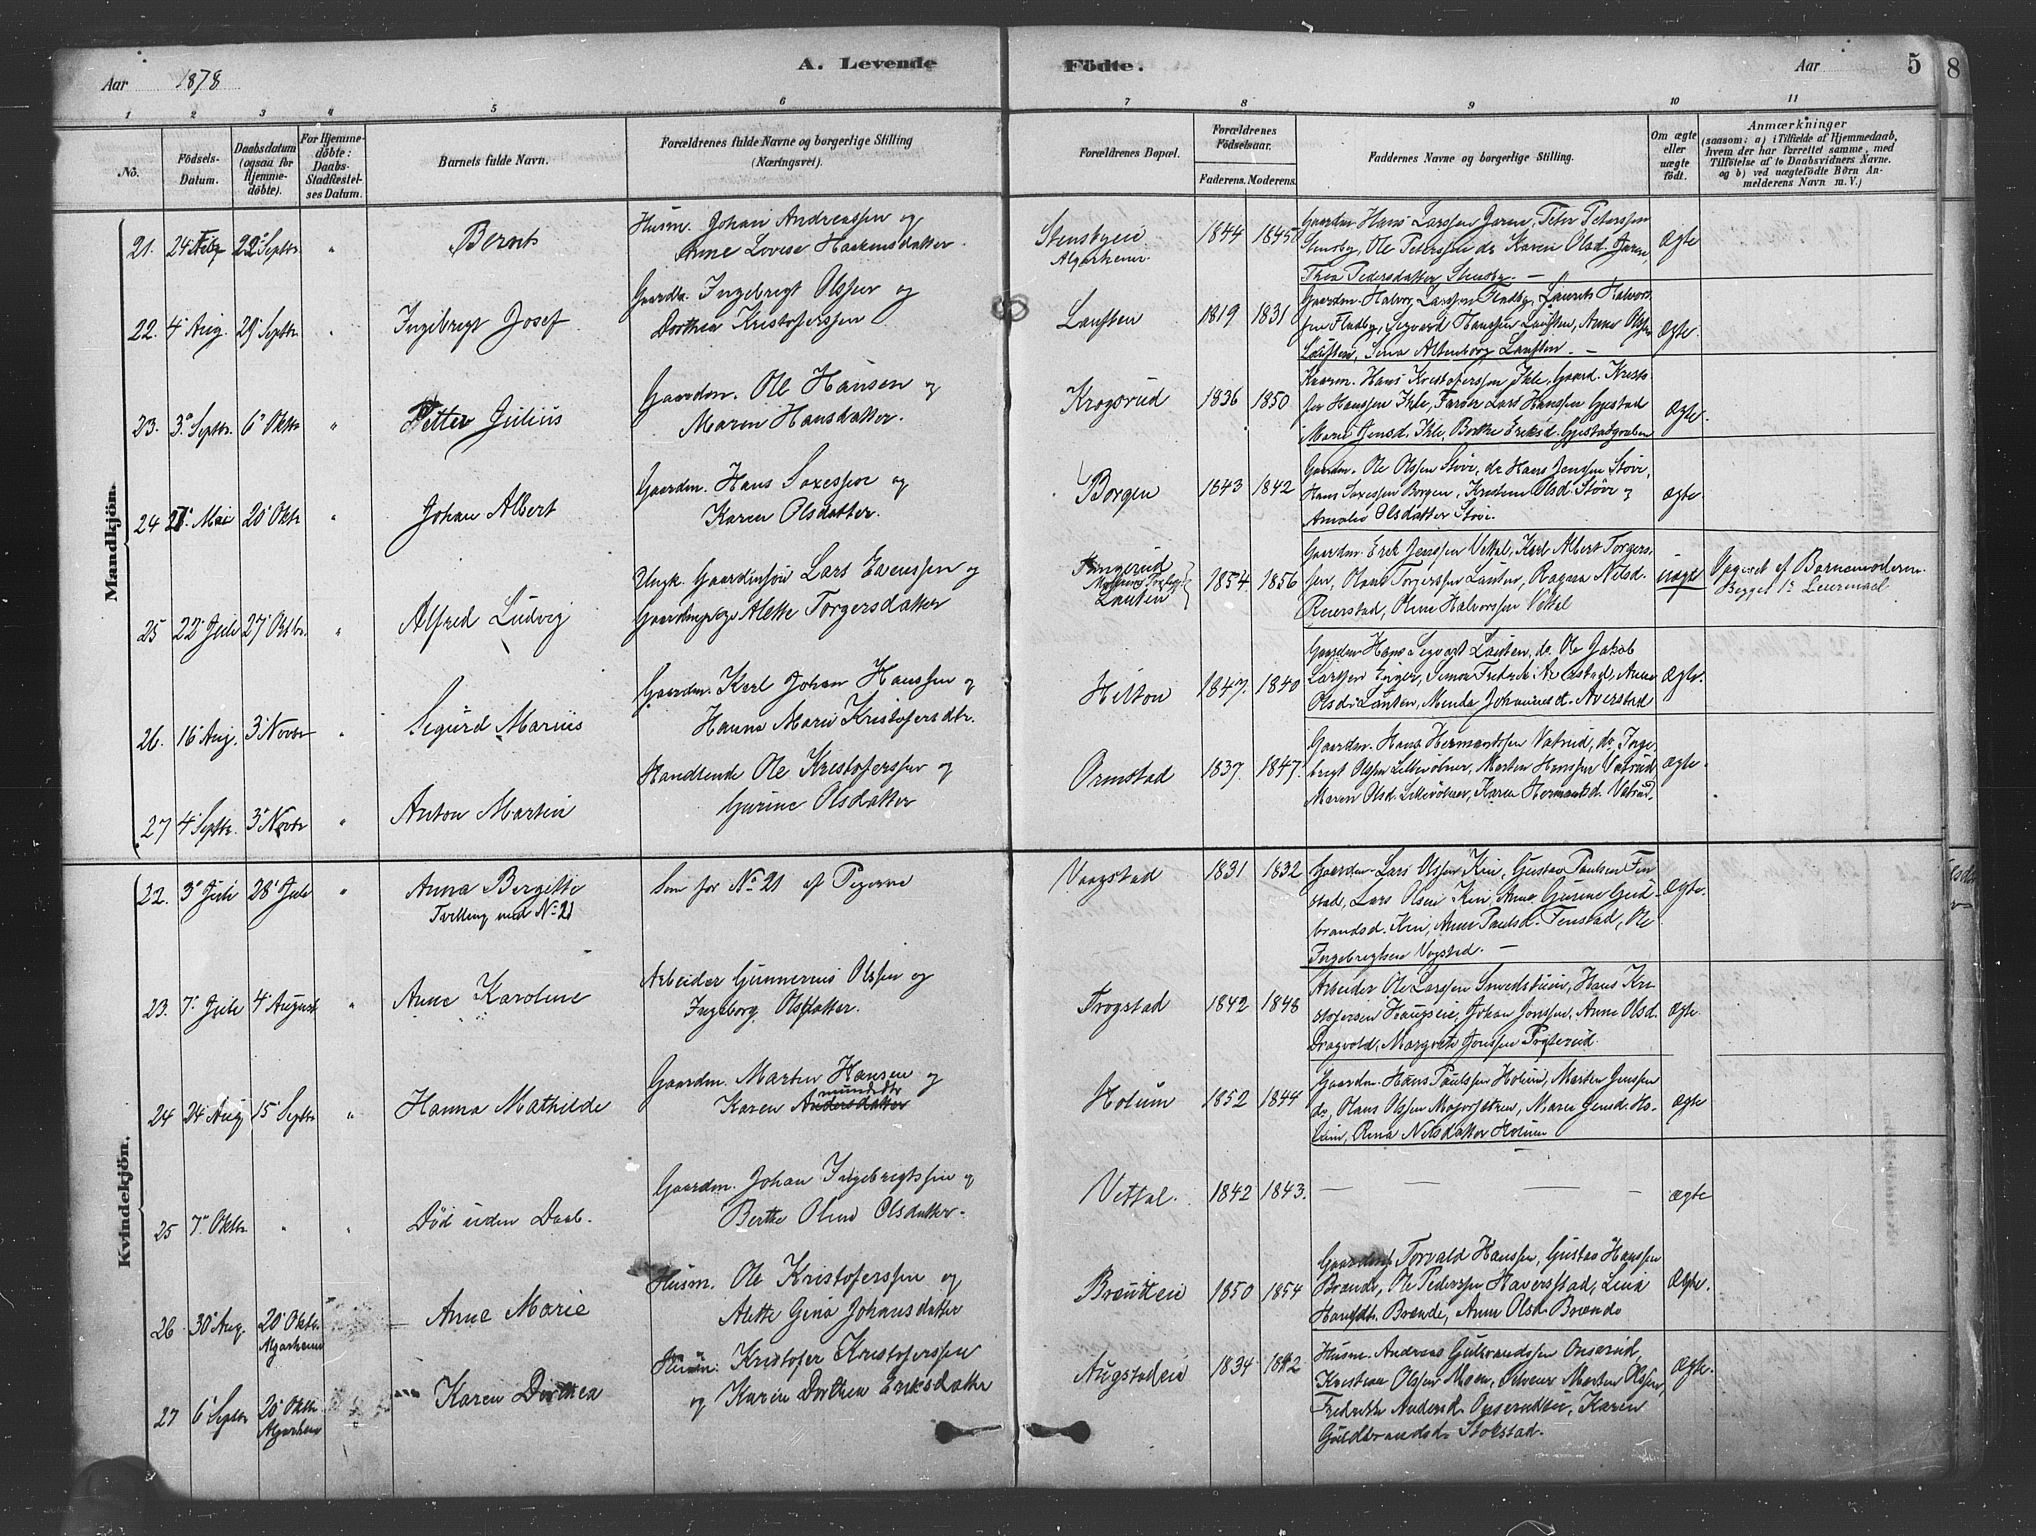 Aar 1878
A. Levende Födte.
Aar 5 8
1 2 3 4 5 6 7 8 9 10 11
No.
Födsels-Datum.
Daabsdatum (ogsaa for Hjemme-döbte).
For Hjemme-döbte: Daabs-Stadfæstelses Datum.
Barnets fulde Navn.
Forældrenes fulde Navne og borgerlige Stilling (Næringsvei).
Forældrenes Bopæl.
Forældrenes Födselsaar.
Faderens. Moderens.
Faddernes Navne og borgerlige Stilling.
Om ægte eller uægte födt.
Anmærkninger
(saasom: a) i Tilfælde af Hjemmedaab,
hvem der har forrettet samme, med
Tilföielse af to Daabsvidners Navne.
og b) ved uægtefödte Børn An-
melderens Navn m. V.)
Mandkjön.
21. 22 Septbr. " Bernt
Husm. Johan Andreassen og
Anne Lovise Haakensdatter.
Stensbyeie
1844 1845
Gaardm. Hans Larssen Jaren, Peter Peterssen
Stensby, Ole Peterssen do Karen Olsd. Jaren,
Thea Pedersdatter Stensby. —
Ægte
22. 4 Aug. 29 Septbr. " Ingebrigt Josef
Gaardbr. Ingebrigt Olssen og
Dorthea Kristoferssen
Lausten
1819 1831
Gaardm. Halvor Larssen Fladby, Laurits Halvors-
sen Fladby, Segvard Hanssen Lausten, Anne Olsen
Lausten, Sina Altenborg Lausten. —
Ægte.
23. 3 Septbr. 6 Oktbr " Petter Julius
Gaardm. Ole Hansen og
Maren Hansdatter.
Krogsrud
1836 1850
Gaardm. Hans Kristoferssen Ihle, Gaard. Kristo-
fer Hanssen Ihle, Farver Lars Hanssen Gjestad
Marie Jensd. Ihle, Berthe Eriksd. Gjestadgraben
Ægte.
24 21 Mai 20 Oktr " Johan Albert
Gaardm. Hans Saxessen og
Karen Olsdatter.
Borgen
1843 1842
Gaardm. Ole Olssen Støvi, do Hans Jenssen Støvi,
Hans Saxessen Borgen, Kristine Olsd. Støvi og
Amalie Olsdatter Støvi.
Ægte
25 22 Juli 27 Oktbr. " Alfred Ludvig
Ungk. Gaardmsøn Lars Evenssen og
Gaardmpige Alette Torgersdatter
Lauten
1854 1856
Gaardm. Erik Jenssen Vettal, Karl Albert Torgers-
sen, Olaus Torgerssen Lauten, Ragna Nilsd.
Reierstad, Oline Halvorssen Vettal
uægte
Opgivet af Barnemoderen.
Begges 1ste Leiermaal
26. 16 Aug. 3 Novbr " Sigurd Marius
Gaardm. Karl Johan Hanssen og
Hanna Marie Kristofersdtr.
Helton
1847. 1840
Gaardm. Hans Segvart Lauten, do. Ole Jakob
Larssen Enger, Simon Fredrik Averstad, Anne
Olsd. Lauten, Menda Johannesd. Averstad
Ægte.
27 4 Septbr. 3 Novbr " Anton Martin
Handlende Ole Kristoferssen og
Gurine Olsdatter
Ormstad
1837. 1847.
Gaardm. Hans Hermandssen Vatrud, do, Inge-
brigt Olssen Lillevöhner, Marten Hanssen Vatrud
Maren Olsd. Lilleöhner, Karen Hermansd. Vatrud.
Ægte.
Kvindekjön.
22. 3 Juli 28 Juli " Anna Bergitte
Tvilling med No 21
Som for No 21 af Pigerne
Vaagstad
1831 1832
Gaardm. Lars Olssen Kin, Gustav Paulsen Fen-
stad, Lars Olsen Kin, Anne Gurine Gud-
brandsd. Kin, Anne Paulsd. Fenstad, Ole
Ingebrigtsen Vogstad. —
Ægte.
23. 7 Juli 4 August " Anne Karoline
Arbeider Gunnerius Olssen og
Ingeborg Olsdatter.
Frogstad
1842 1848
Arbeider Ole Larssen Smedstueie, Hans Kri-
stofersen Haugseie, Johan Jonssen, Anne Olsd.
Dragvold, Margrete Jonssen
Ægte.
24 24 Aug 15 Septbr " Hanna Mathilde
Gaardm. Marten Hansen og
munddtr
Karen Andersdatter
Holum
1852 1844
Gaardm. Hans Paulssen Holum, Marten Jenssen
do, Hans Olssen Majorsetren, Maren Jensd. Ho-
lum, Rena Nilsdatter Holum
Ægte
25 7 Oktbr. " " Död uden Daab.
Gaardm. Johan Ingebrigtssen og
Berthe Oline Olsdatter.
Vettal.
1842 1843.
— — — —
Ægte
26 30 Aug. 20 Oktbr. Algarheim Anne Marie
Husm. Ole Kristoferssen og
Alette Gina Johansdatter
Brændeie
1850 1854
Gaardm. Torvald Hanssen, Gustav Hanssen
Brænde, Ole Pederssen Haversstad, Lina
Hansdtr. Brænde, Anne Olsd. Brænde
Ægte.
27 6 Septbr 20 Oktbr Algarheim Karen Dorthea
Husm. Kristofer Kristoferssen
og Karen Dorthea Eriksdatter
Augstadeie
1834 1842
Husm. Andreas Gulbrandssen Onsrud,
Kristian Olssen Moen, Marten Olssen,
Fredrikke Andersd. Onsrudeie, Karen
Guldbrandsd. Stokstad.
Ægte.